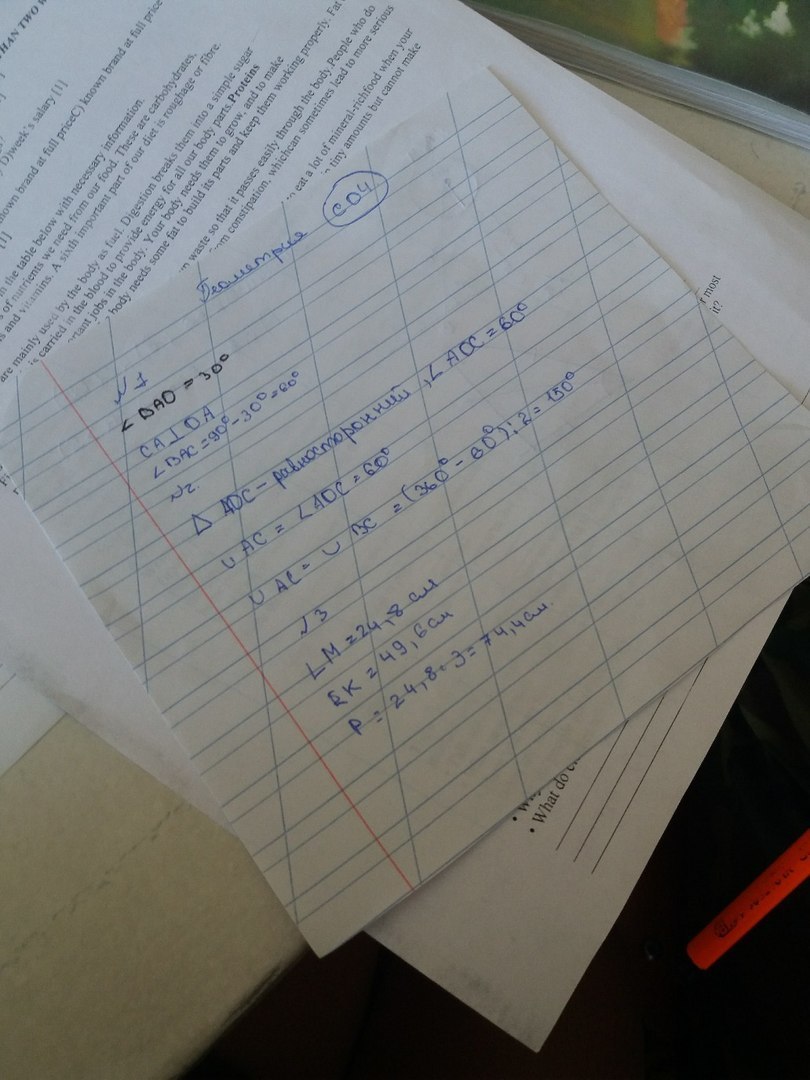 THAN TWO
D)week's salary [1]
nown brand at full priceC) known brand at full price
[1]
n the table below with necessary information
of nutrients we need from our food. These are carbohydrates,
s and vitamins. A sixth important part of our diet is roughage or fibre.
are mainly used by the body as fuel. Digestion breaks them into a simple sugar
is carried in the blood to provide energy for all our body parts.Proteins
rtant jobs in the body. Your body needs them to grow, and to make
body needs some fat to build its parts and keep them working properly. Fat
n waste so that it passes easily through the body.People who do
om constipation, whichcan sometimes lead to more serious
eat a lot of mineral-richfood when your
n tiny amounts but cannot make
r most
it?
Геометрия СО4
№1
∠BAO = 30°
CA⊥OA
∠BAC = 90° - 30° = 60°
№2.
Δ AOC - равносторонний, ∠AOC = 60°
∪ AC = ∠AOC = 60°
∪ AC = ∪ BC = (360° - 60°) : 2 = 150°
№3
LM = 24,8 см
EK = 49,6 см
P = 24,8 · 3 = 74,4 см.
• What do